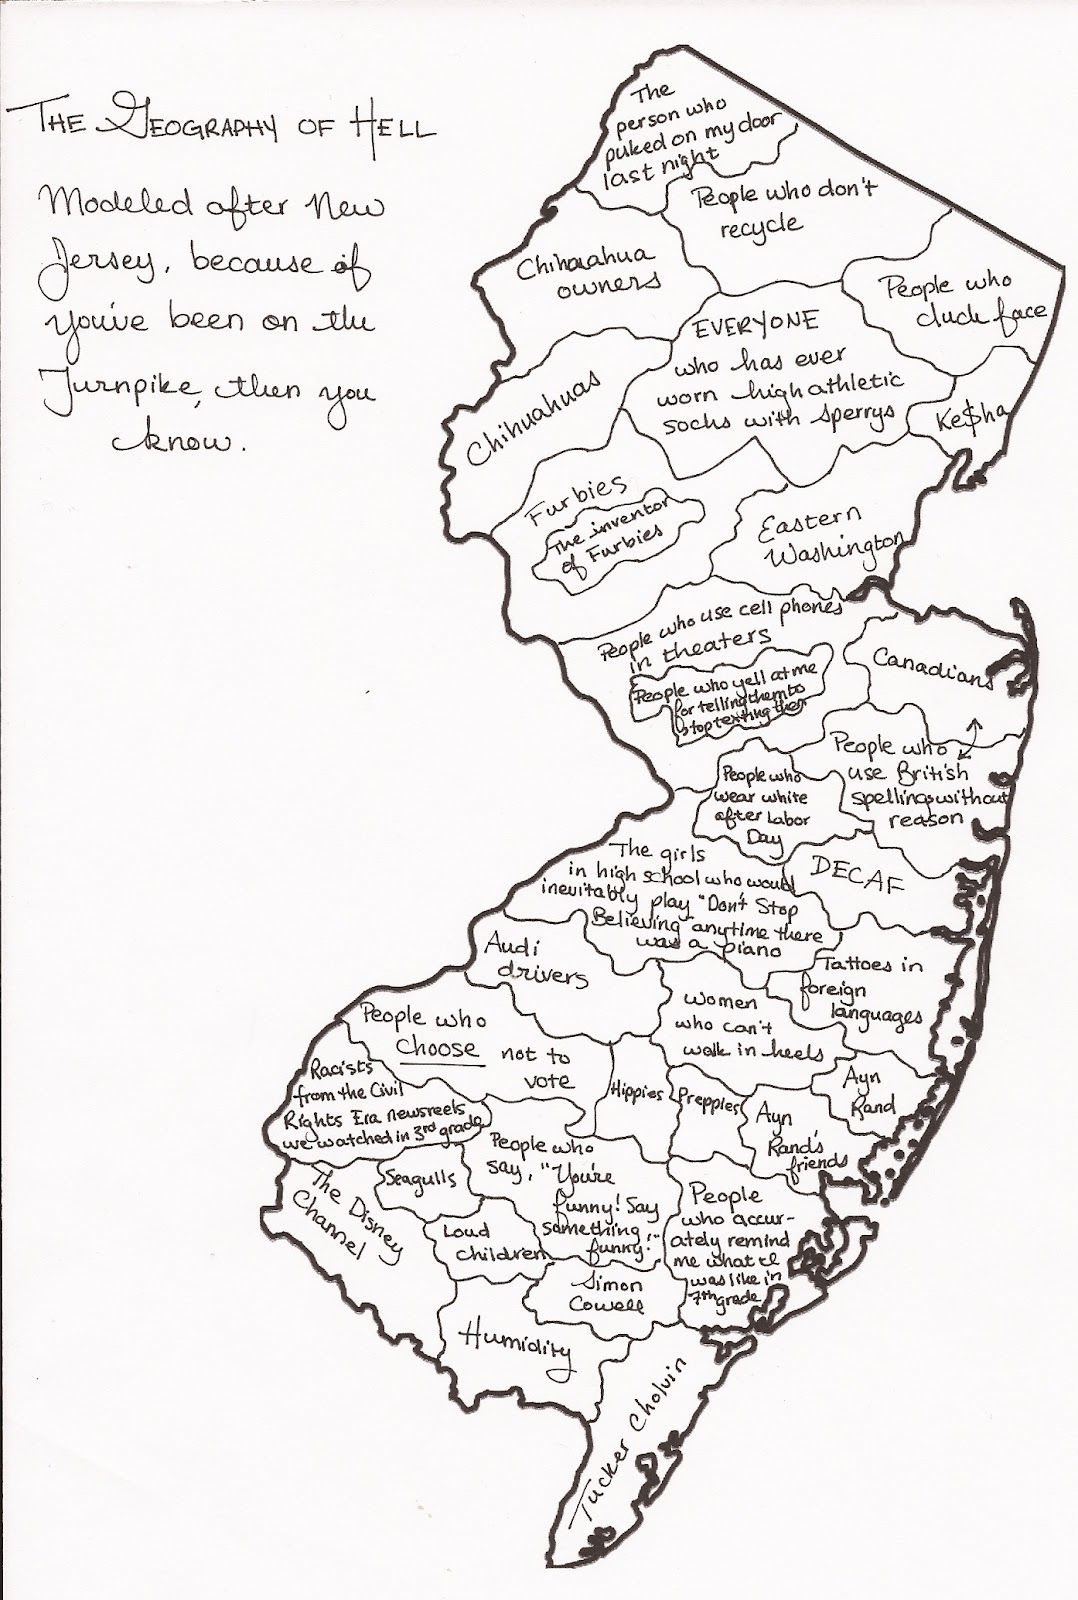 THE GEOGRAPHY OF HELL
Modeled after New
Jersey, because if
you've been on the
Turnpike, then you
know.
The
person who
puked on my door
last night
People who don't
recycle
Chihuahua
owners
People who
duck face
EVERYONE
who has ever
worn high athletic
socks with sperrys
Ke$ha
Chihuahuas
Furbies
The inventor
of Furbies
Eastern
Washington
People who use cell phones
in theaters
People who yell at me
for telling them to
stop texting
Canadians
People who
use British
spellings without
reason
People who
wear white
after Labor
Day
The girls
in high school who would
inevitably play "Don't Stop
Believing" anytime there
was a piano
DECAF
Audi
drivers
Tattoes in
foreign
languages
women
who can't
walk in heels
People who
choose not to
vote
Racists
from the Civil
Rights Era newsreels
we watched in 3rd grade
Hippies
Preppies
Ayn
Rand
Ayn
Rand's
friends
People who
say, "You're
funny! Say
something
funny!"
Seagulls
The Disney
Channel
Loud
children
People
who accur-
ately remind
me what I
was like in
7th grade
Simon
Cowell
Humidity
Tucker Cholvin